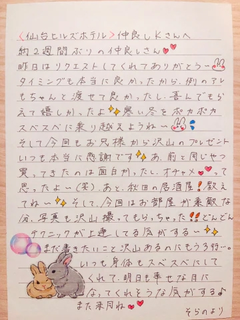 〈仙台ヒルズホテル〉仲良しKさんへ
約2週間ぶりの仲良しさん
昨日はリクエストしてくれてありがとう
タイミングも本当に良かったから、例のアレ
もちゃんと渡せて良かったし、喜んでもら
えて嬉しかったよ 寒い冬をポカポカ
スベスベに乗り越えようねー
そして今回もお兄様から沢山のプレゼント
いつも本当に感謝です あ、前と同じやつ
買ってきたのは面白かったし、オチャメ って
思ったよー(笑)あと、秋田の居酒屋!教え
てねー そして、今回はお部屋が素敵な
分、写真も沢山撮ってもらっちゃった!!どんどん
テクニックが上達してる気がするー
まだ書きたいこと沢山あるのにもう3行…
いつも身体もスベスベにして
くれて、明日も幸せな日に
なってくれそうな気がするよ
また来月ね